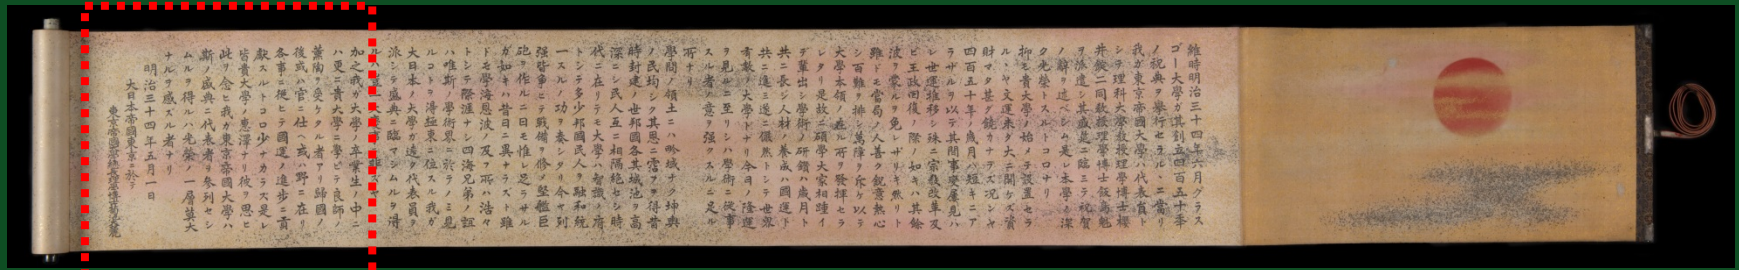 維時明治三十四年六月グラス
ゴー大學ガ其創立四百五十年
ノ祝典ヲ擧行セラルヽニ當リ
我ガ東京帝國大學ハ代表者ト
シテ理科大學教授理學博士櫻
井錠二同教授理學博士飯島魁
ヲ派遣シ其盛是ニ臨ミテ祝賀
ノ辭ヲ述ベシム是レ本學ノ深
ク光榮トスルトコロナリ
抑モ貴大學ノ始メテ設置セラ
ルヽヤ文運未ダ大ニ開ケズ資
財マタ甚ダ饒カナラズ况ンヤ
四百五十年ノ歲月ハ短キニア
ラザルヲ以テ其間事變屢見ハ
レ世運推移シ殊ニ宗敎改革及
ビ王政回復ノ際ノ如キハ其餘
波ヲ蒙ルヲ免レザリキ然リト
雖ドモ當局ノ人善ク銳意熱心
シ百難ヲ排シ萬障ヲ斥ケ以テ
大學本領ノ在ル所ヲ發揮セラ
レタリ是故ニ碩學大家相踵イ
デ輩出シ學術ノ研鑽ハ歲月ト
共ニ長シ人材ノ養成ハ國運ト
共ニ進ミ遂ニ儼然トシテ世界
有數ノ大學トナリ今日ノ隆運
ヲ見ルニ至リシハ學術ニ從事
スル者ノ意ヲ强クスルニ足ル
所ナリ
學問ノ領土ニハ畛域ナク坤輿
ノ民均シク其恩ニ霑フヲ得昔
時封建ノ世邦國各其城池ヲ高
深ニシ民人互ニ相隔絕セシ時
代ニ在リテモ大學ハ智識ノ府
トシテ多少邦國民人ヲ融和統
一スルノ功ヲ奏セリ今ヤ列
强皆爭ヒテ戰備ヲ修メ堅艦巨
砲ヲ作ルニ日モ惟レ足ラザル
ガ如キハ昔日ニ異ナラズト雖
トモ學海恩波ノ及ブ所ハ浩々
トシテ際涯ナシ四海兄弟ノ誼
ハ唯斯ノ學術界ニ於テノミ見
ルコトヲ得極東ニ位スル我ガ
大日本ノ大學ガ遠ク代表員ヲ
派シテ盛典ニ臨マシムルヲ得
ルハ
加之我ガ大學ノ卒業生ノ中ニ
ハ更ニ貴大學ニ學ビテ良師ノ
薰陶ヲ受ケタル者アリ歸國ノ
後或ハ官ニ仕ヘ或ハ野ニ在リ
各事ニ從ヒテ國運ノ進步ニ貢
獻スルトコロ少ナカラズ是レ
皆貴大學ノ惠澤ナリ彼ヲ思ヒ
此ヲ念ヒ我ガ東京帝國大學ハ
斯ノ盛典ニ代表者ヲ參列セシ
ムルヲ得ルハ光榮ノ一層大
ナルヲ感ズル者ナリ
明治三十四年五月一日
大日本帝國東京ニ於テ
東京帝國大學總長理學博士菊池大麓